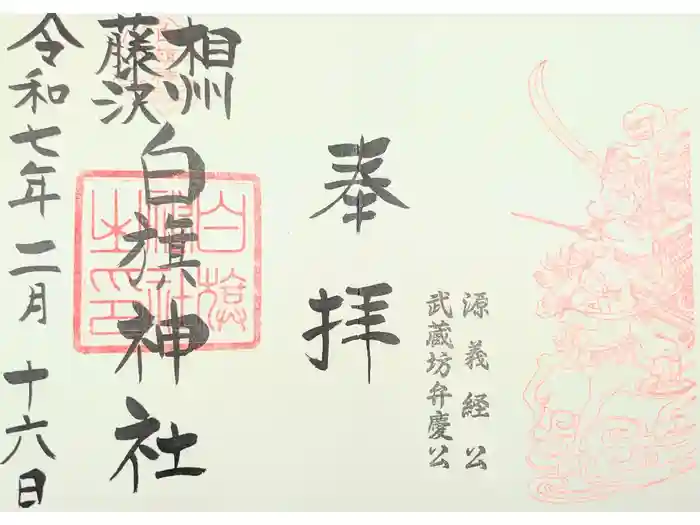 源義経公
武蔵坊弁慶公
奉拝
相州
藤沢
白旗神社
白旗神社之印
令和七年二月十六日